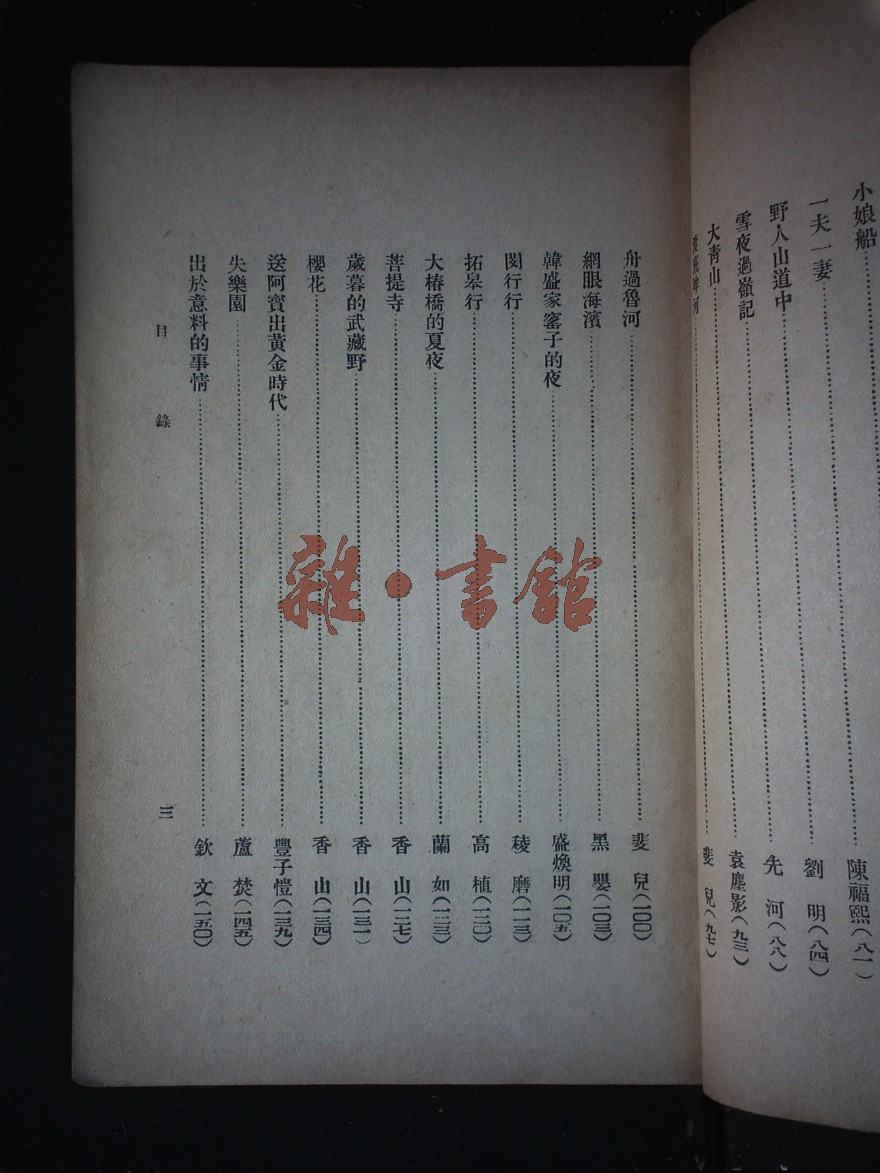 小娘船……陳福熙（八一）
一夫一妻……劉明（八四）
野人山道中……先河（八八）
雪夜過嶺記……袁塵影（九三）
大青山……斐兒（九七）
舟過魯河……斐兒（一〇〇）
網眼海濱……黑嬰（一〇三）
韓盛家窰子的夜……盛煥明（一〇五）
閔行行……稜磨（一一三）
拓皋行……高植（一二〇）
大椿橋的夏夜……蘭如（一二三）
菩提寺……香山（一二七）
歲暮的武藏野……香山（一三一）
櫻花……香山（一三四）
送阿寶出黃金時代……豐子愷（一三九）
失樂園……蘆焚（一四五）
出於意料的事情……欽文（一五〇）
目錄
三
雜·書館